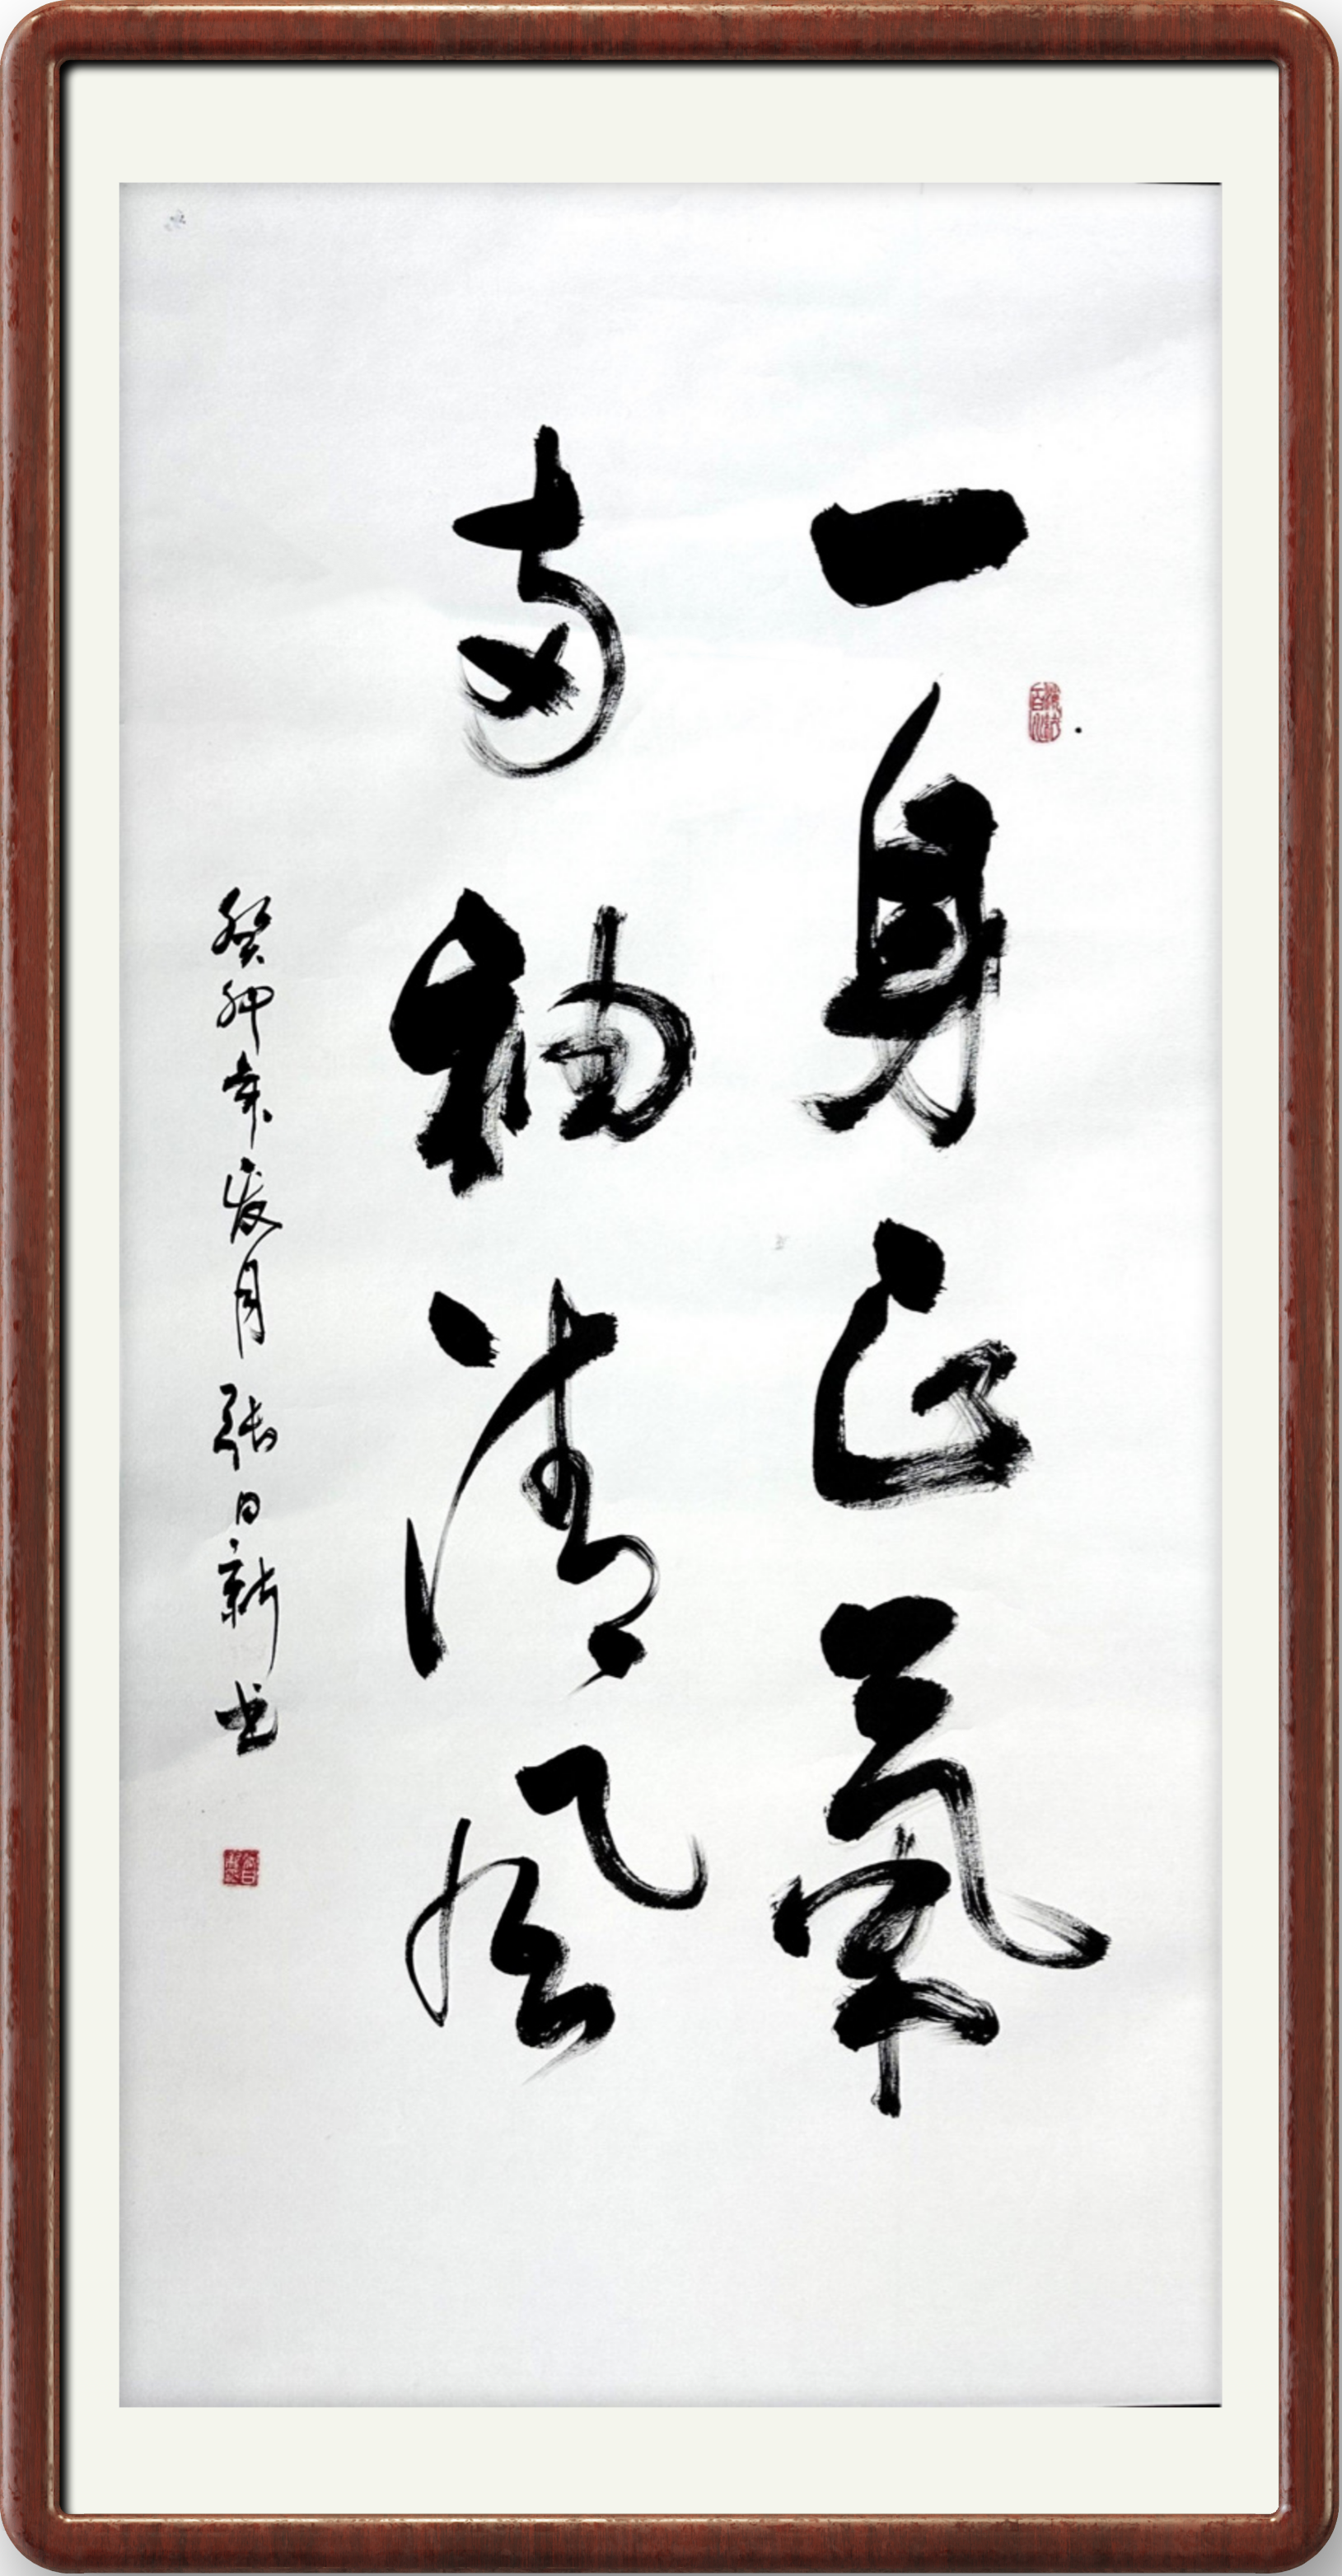 一身正氣
兩袖清風
癸卯年夏月 張日新书